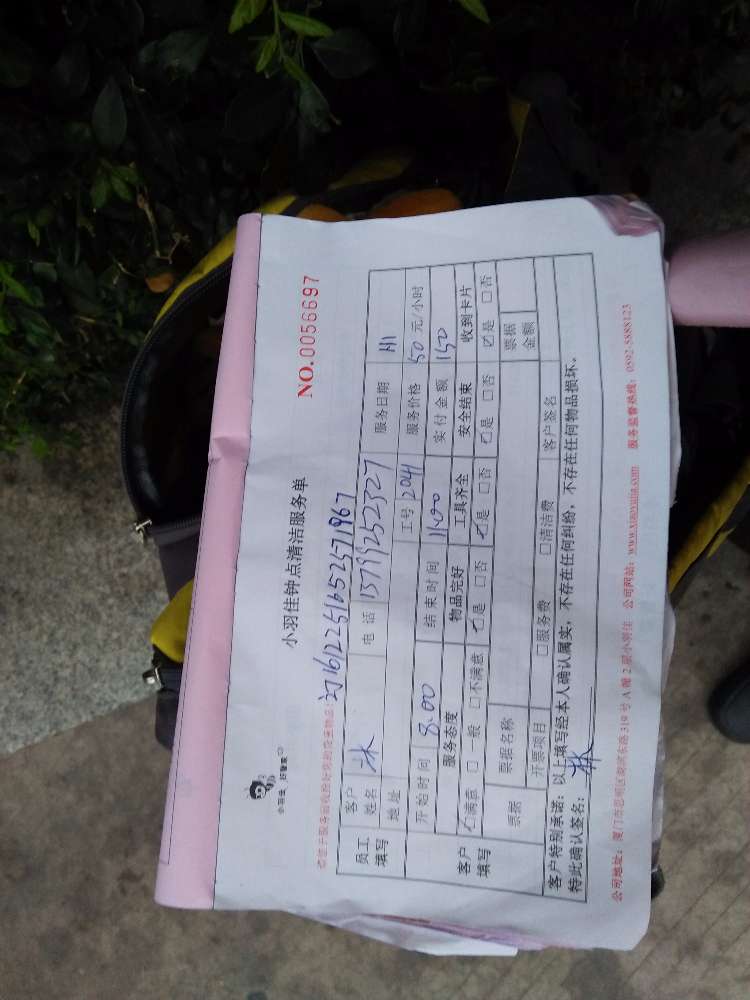 小羽佳 好管家
小羽佳钟点清洁服务单
NO.0056697
员工填写 客户姓名 林 电话 13799252327 服务日期 11.1
地址 工号 2041 服务价格 50 元/小时
开始时间 8.00 结束时间 11.00 实付金额 150
客户填写 服务态度 物品完好 工具齐全 安全结束 收到卡片
☑满意 □一般 □不满意 ☑是 □否 ☑是 □否 ☑是 □否 ☑是 □否
票据 票据名称 票据金额
开票项目 □服务费 □清洁费 客户签名
客户特别承诺：以上填写经本人确认属实，不存在任何纠纷，不存在任何物品损坏。
特此确认签名：林
公司地址：厦门市思明区莲前东路319号A幢2层小羽佳 公司网站：www.xiaoyujia.com 服务监督热线：0592-5888123